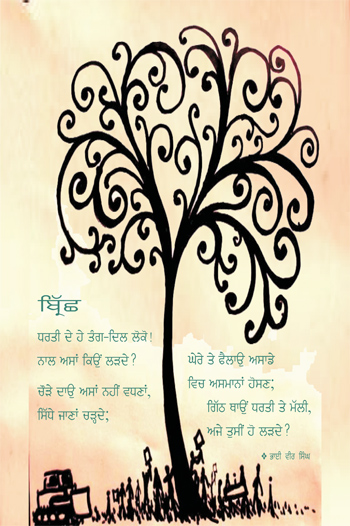 ਬ੍ਰਿੱਛ
ਧਰਤੀ ਦੇ ਹੇ ਤੰਗ-ਦਿਲ ਲੋਕੋ!
ਨਾਲ ਅਸਾਂ ਕਿਉਂ ਲੜਦੇ?
ਚੌੜੇ ਦਾਉ ਅਸਾਂ ਨਹੀਂ ਵਧਣਾਂ,
ਸਿੱਧੇ ਜਾਣਾਂ ਚੜ੍ਹਦੇ;
ਘੇਰੇ ਤੇ ਫੈਲਾਉ ਅਸਾਡੇ
ਵਿਚ ਅਸਮਾਨਾਂ ਹੋਸਣ;
ਗਿੱਠ ਥਾਉਂ ਧਰਤੀ ਤੇ ਮੱਲੀ,
ਅਜੇ ਤੁਸੀਂ ਹੋ ਲੜਦੇ?
❖ ਭਾਈ ਵੀਰ ਸਿੰਘ